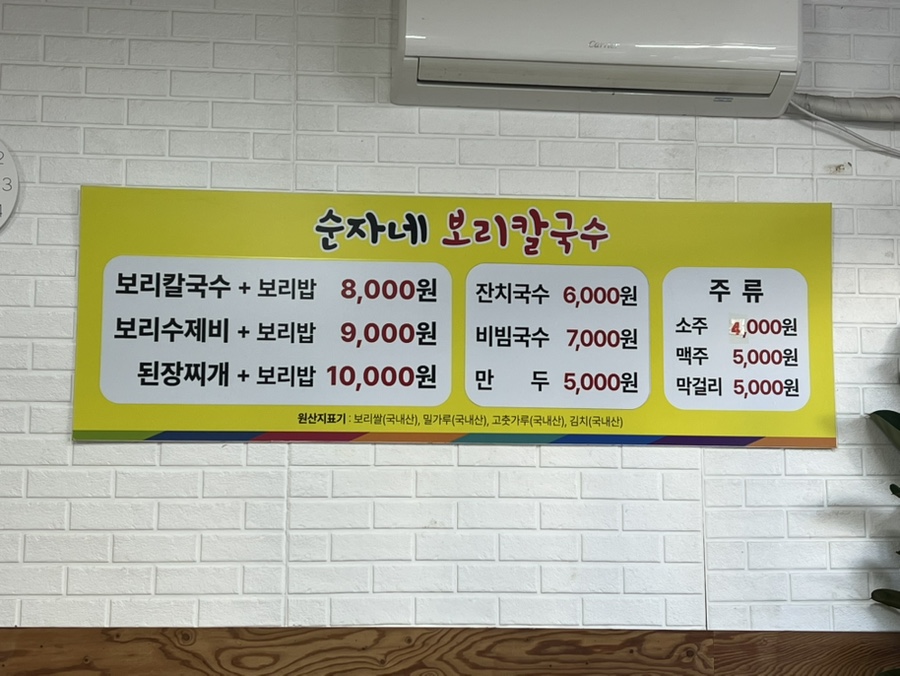 Carrier
2
3
4
순자네 보리칼국수
보리칼국수 + 보리밥 8,000원
보리수제비 + 보리밥 9,000원
된장찌개 + 보리밥 10,000원
잔치국수 6,000원
비빔국수 7,000원
만 두 5,000원
주 류
소주 4,000원
맥주 5,000원
막걸리 5,000원
원산지표기 : 보리쌀(국내산), 밀가루(국내산), 고춧가루(국내산), 김치(국내산)